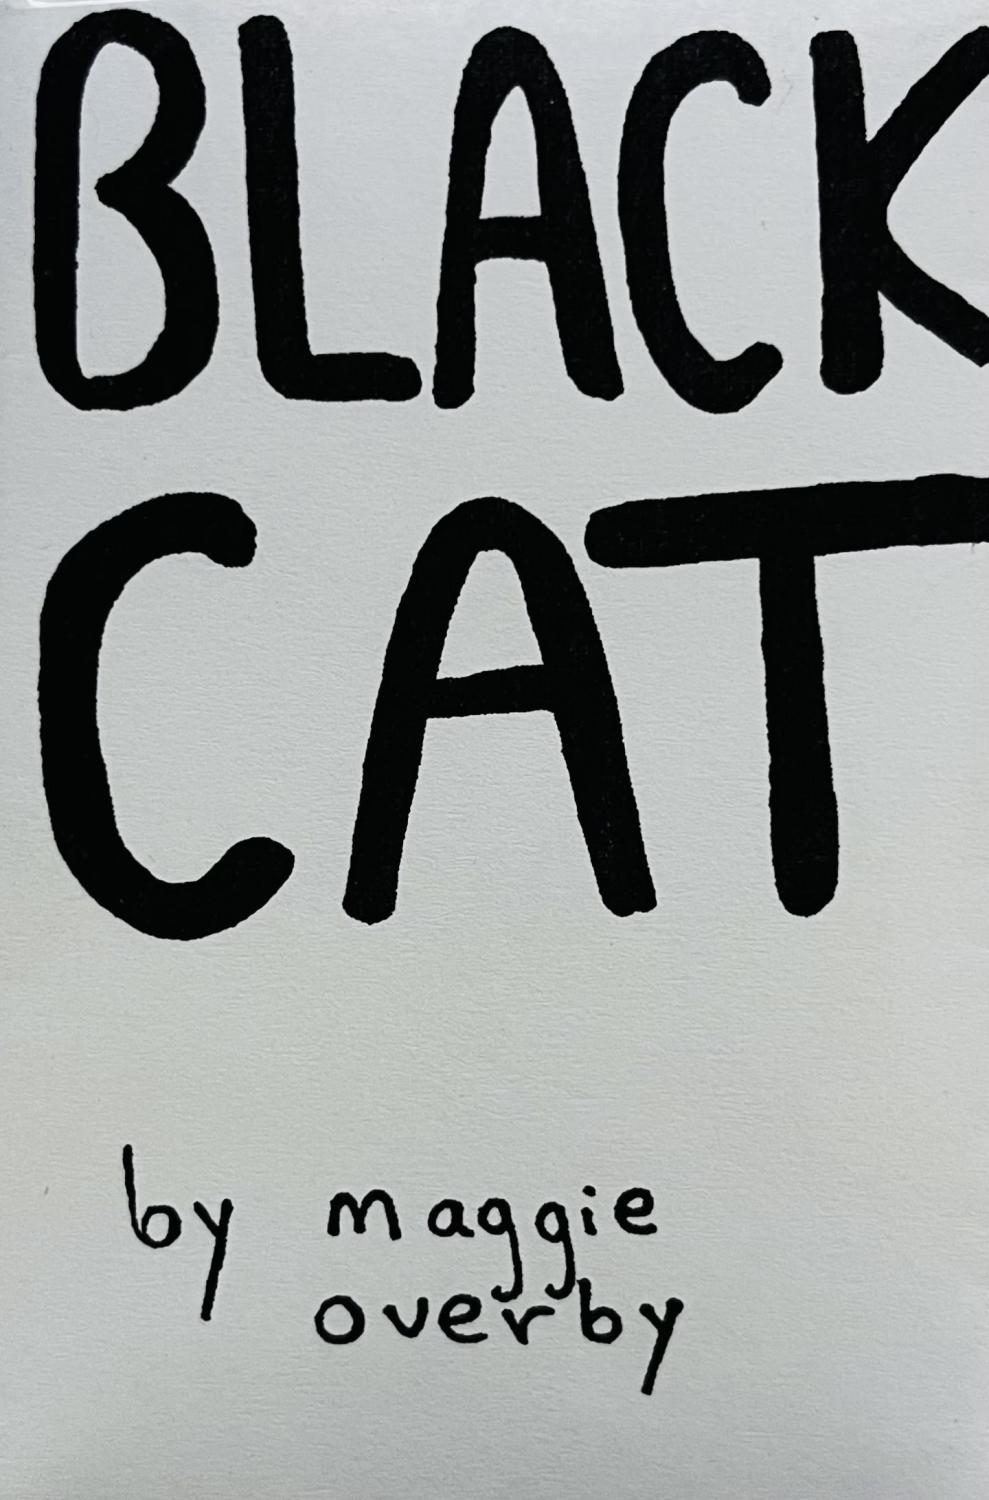 BLACK
CAT
by maggie
overby